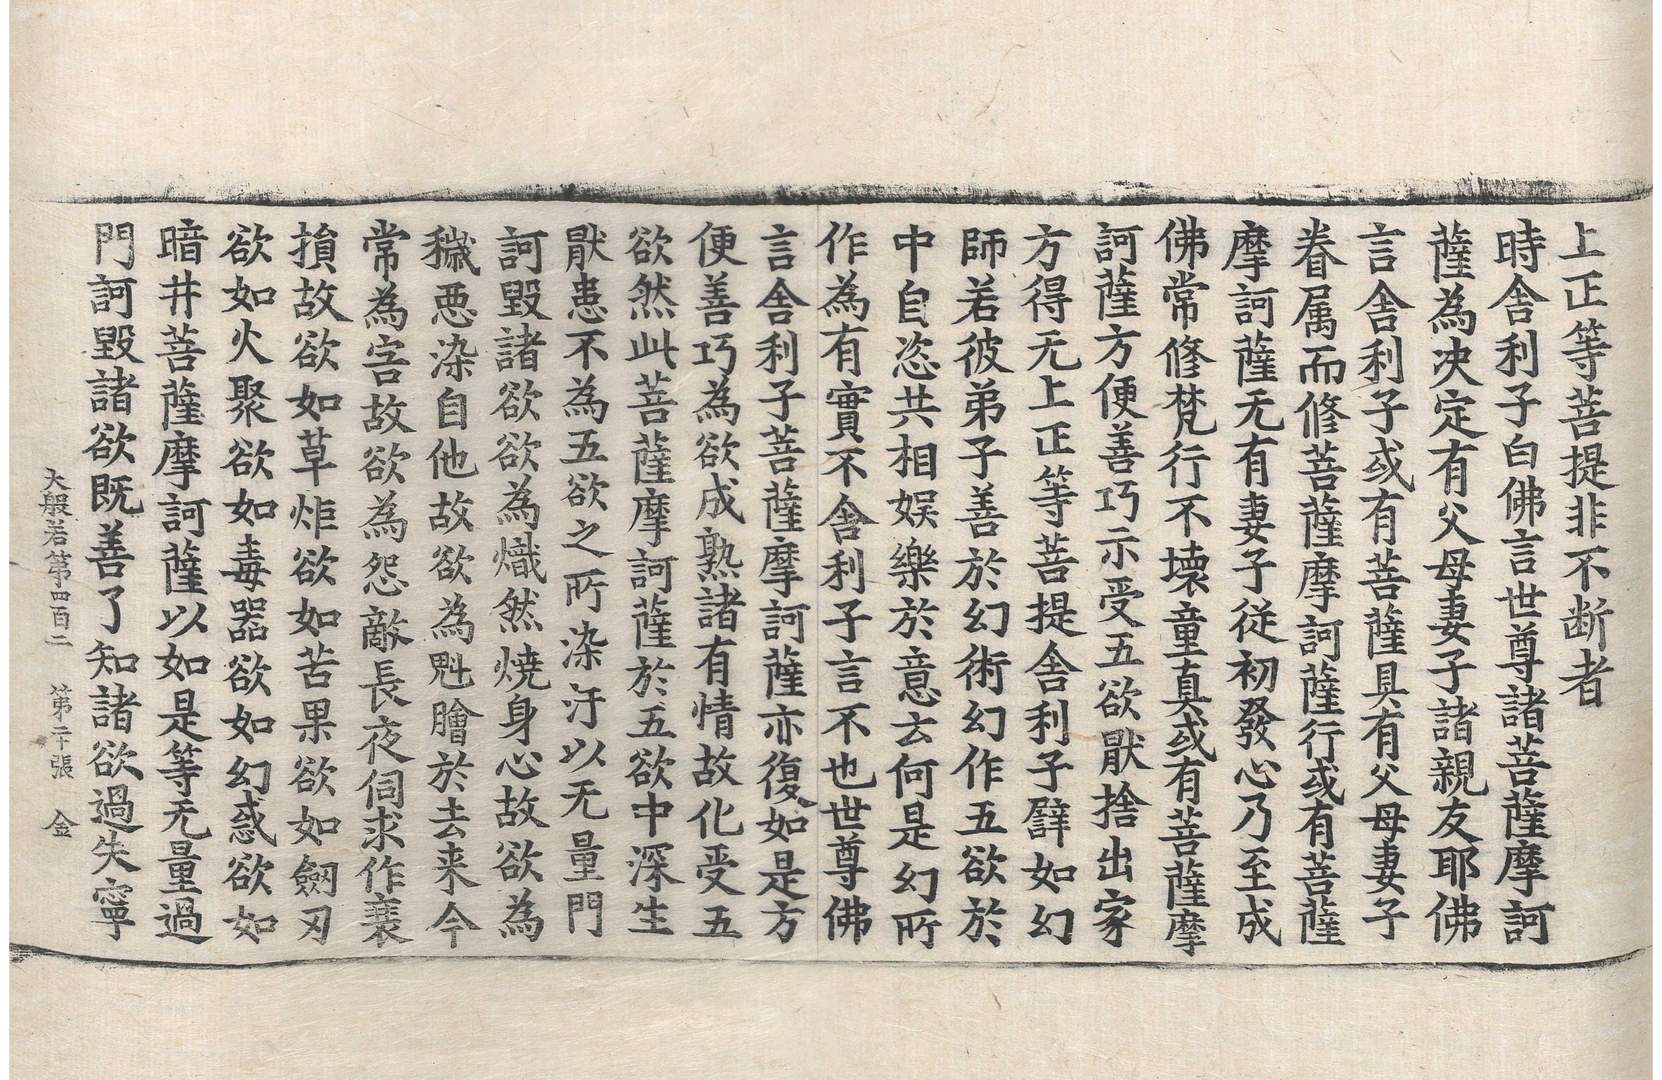 上正等菩提非不断者
時舎利子白佛言世尊諸菩薩摩訶
薩為决定有父母妻子諸親友耶佛
言舎利子或有菩薩具有父母妻子
眷属而修菩薩摩訶薩行或有菩薩
摩訶薩无有妻子従初發心乃至成
佛常修梵行不壊童真或有菩薩摩
訶薩方便善巧示受五欲猒捨出家
方得无上正等菩提舎利子譬如幻
師若彼弟子善於幻術幻作五欲於
中自恣共相娯樂於意云何是幻所
作為有實不舎利子言不也世尊佛
言舎利子菩薩摩訶薩亦復如是方
便善巧為欲成熟諸有情故化受五
欲然此菩薩摩訶薩於五欲中深生
猒患不為五欲之所染汙以无量門
訶毀諸欲欲為熾然焼身心故欲為
穢惡染自他故欲為魁膾於去来今
常為害故欲為怨敵長夜伺求作衰
損故欲如草炬欲如苦果欲如劔刃
欲如火聚欲如毒器欲如幻惑欲如
暗井菩薩摩訶薩以如是等无量過
門訶毀諸欲既善了知諸欲過失寧
大般若第四百二 第二十張 金